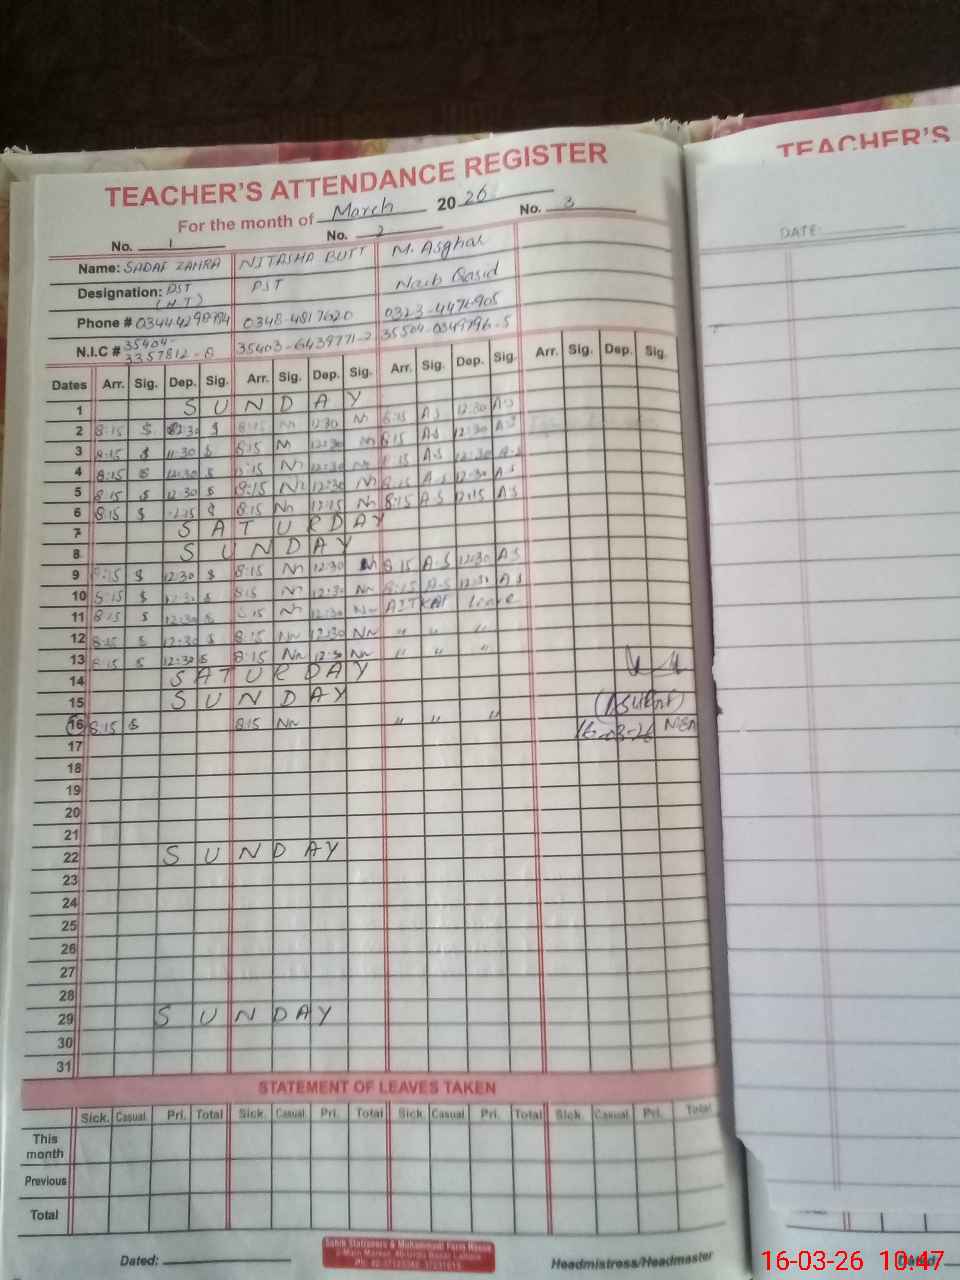 TEACHER'S ATTENDANCE REGISTER
TEACHER'S
For the month of March 20 26
DATE:
No. 1 No. 2 No. 3
Name: SADAF ZAHRA NITASHA BUTT M. Asghar
Designation: PST (H T) PST Naib Qasid
Phone # 0348-4817620 0323-4476905
N.I.C # 35404- 3357812 - 35403-6439771-2
Dates Arr. Sig. Dep. Sig. Arr. Sig. Dep. Sig. Arr. Sig. Dep. Sig. Arr. Sig. Dep. Sig.
1 S U N D A Y
2 8:15 $ 12:30 $ 8:15 N 12:30 N 8:15 AS 12:30 AS
3 8:15 $ 11:30 $ 8:15 N 12:30 N 8:15 AS 12:30 AS
4 8:15 $ 12:30 $ N 12:30 Nn AS 12:30 A-S
5 8:15 $ 12:30 $ 8:15 Nn 12:30 N 8:15 A-S 12:30 AS
6 8:15 $ $ 8:15 Nn 12:15 N 8:15 AS 12:15 AS
7 S A T U R D A Y
8 S U N D A Y
9 8:15 $ 12:30 $ 8:15 Nn 12:30 Nn 8:15 A-S 12:30 AS
10 8:15 $ 12:30 $ 8:15 Nn 12:30 Nn 8:15 A-S 12:30 AS
11 8:15 $ 12:30 $ 8:15 Nn 12:30 Nn Leave
12 8:15 $ 12:30 $ 8:15 Nn 12:30 Nn " " "
13 8:15 $ 12:30 $ 8:15 Nn 12:30 Nn " " "
14 S A T U R D A Y
15 S U N D A Y
16 8:15 $ 8:15 Nn " " " 16-03-26
17
18
19
20
21
22 S U N D A Y
23
24
25
26
27
28
29 S U N D A Y
30
31
STATEMENT OF LEAVES TAKEN
Sick. Casual Pri. Total Sick. Casual Pri. Total Sick. Casual Pri. Total Sick. Casual Pri. Total
This month
Previous
Total
Dated:
Headmistress/Headmaster
Dated:
16-03-26 10:47